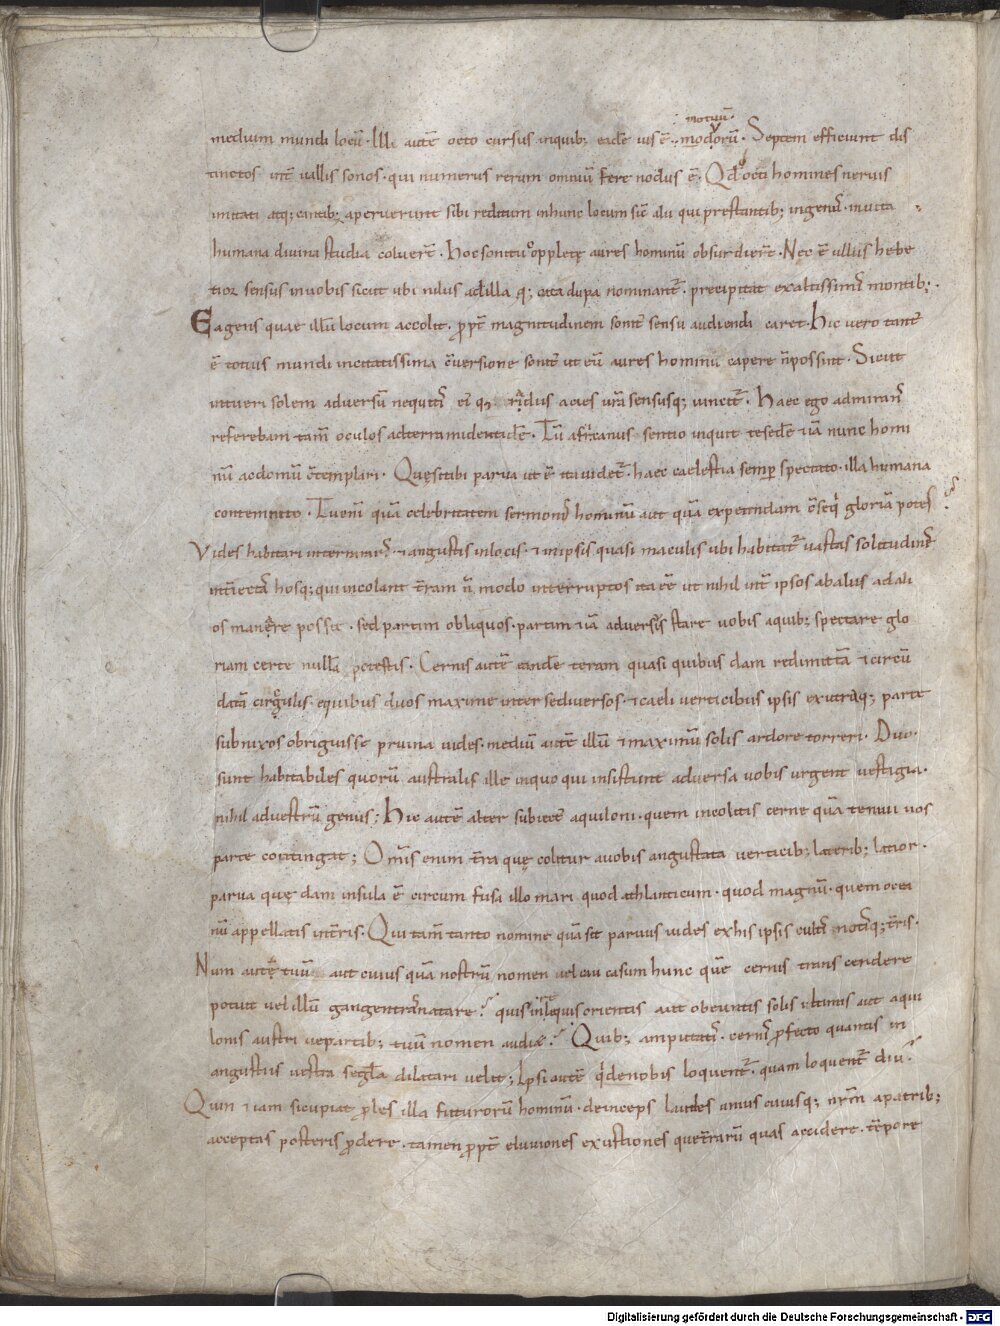 medium mundi locū. Illi autē octo cursus inquib; eadē uis ē. modorū. Septem efficiunt dis
motuū.
tinctos intˉ uallis sonos. qui numerus rerum omniū fere nodus ē. Qđ octi homines neruis
imitati atq; cantib; aperuerunt sibi reditum inhunc locum sic̄ alii qui prestantib; ingeniˉ. inuita
humana diuina studia coluerˉ. Hoc sonitu oppletę aures hominū obsurdierˉ. Nec ē ullus hebe
tior sensus inuobis sicut ubi nilus adilla q; catadupa nominantˉ. precipitat exaltissimiˉ montib;.
Eagens quae illū locum accolit. ꝓptˉ magnitudinem sonitˉ sensu audiendi caret. Hic uero tantˉ
ē totius mundi incitatissima cˉuersione sonitˉ ut eū aures hominū capere nˉpossint. Sicut
intueri solem aduersū nequitiˉ eiˉ q; radiis acies urˉa sensusq; uincitˉ. Haec ego admiranˉ
referebam tamˉ oculos adterram identidē. Tū africanus sentio inquit tesedē &iā nunc homi
nū acdomū cˉtemplari. Quęsitibi parua ut ē itauidetˉ. haec caelestia semꝑ spectato. illa humana
contemnito. Tu enī quā celebritatem sermoniˉ hominū aut quā expetendam cˉseq̇ gloriā potesˉ
Vides habitari interrarˉ. & angustis inlocis. & inipsis quasi maculis ubi habitatˉ uastas solitudinˉ
intˉiectāˉ hosq; qui incolunt tˉram nˉ modo interruptos ita eē ut nihil intˉ ipsos abaliis adali
os manare possit. sed partim obliquos. partim &iā aduersis stare uobis aquib; spectare glo
riam certe nullā potestis. Cernis autē eandē terram quasi quibus dam redimitā & circū
datā cingulis. equibus duos maxime inter sediuersos. & caeli uerticibus ipsis exutraq; parte
subnixos obriguisse pruina uides. mediū autē illū & maximū solis ardore torreri. Duo.
sunt habitabiles quorū australis ille inquo qui insistunt aduersa uobis urgent uestigia.
nihil aduestrū genus; Hic autē alter subiectˉ aquiloni. quem incolitis cerne quā tenui uos
parte contingat; Omiˉs enim tˉra quę colitur auobis angustata uerticib; laterib; latior.
parua quę dam insula ē circum fusa illo mari quod athlanticum. quod magnū. quem ocea
nū appellatis intˉris. Qui tamˉ tanto nomine quā sit paruus uides exhis ipsis cultiˉ notisq; tˉris.
Num autē tuū aut cuius quā nostrū nomen uel cau casum hunc quē cernis trans cendere
potuit uel illū gangen tranatare? quis inreliquis orientis aut obeuntis solis ultimis aut aqui
lonis austri ue partib; tuū nomen audi&? Quib; amputatiˉ. cerniˉ ꝓfecto quantis in
angustiis uestra sˉeglˉa dilatari uelit; Ipsi autē q̇ denobis loquentˉ. quam loquentˉ diu?
Quin &iam sicupiat ꝓles illa futurorū hominū. deinceps laudes unius cuiusq; nrˉm apatrib;
acceptas posteris ꝓdere. tamen ꝓptˉ eluuiones exustiones quetˉrarū quas accidere. tē̄pore
Digitalisierung gefördert durch die Deutsche Forschungsgemeinschaft - DFG